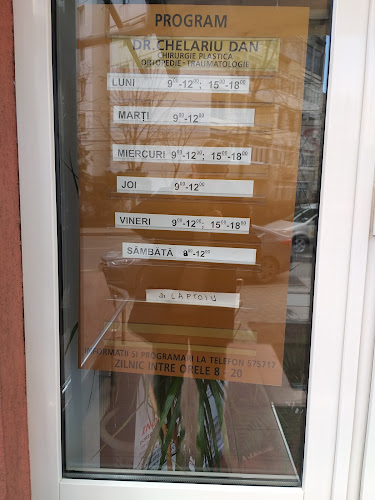 PROGRAM
DR.CHELARIU DAN
CHIRURGIE PLASTICA
ORTOPEDIE - TRAUMATOLOGIE
LUNI 9⁰⁰-12⁰⁰; 15⁰⁰-18⁰⁰
MARŢI 9⁰⁰-12⁰⁰
MIERCURI 9⁰⁰-12⁰⁰; 15⁰⁰-18⁰⁰
JOI 9⁰⁰-12⁰⁰
VINERI 9⁰⁰-12⁰⁰; 15⁰⁰-18⁰⁰
SÂMBĂTĂ 9⁰⁰-12⁰⁰
INFORMATII SI PROGRAMARI LA TELEFON 575717
ZILNIC INTRE ORELE 8 - 20